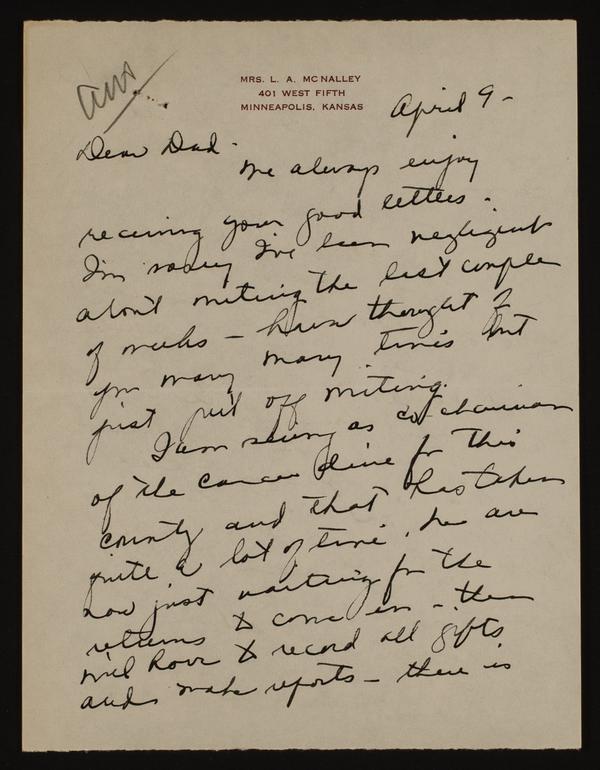 ans
MRS. L. A. MCNALLEY
401 WEST FIFTH
MINNEAPOLIS, KANSAS
April 9 -
Dear Dad -
We always enjoy
receiving your good letters.
I'm sorry I've been negligent
about writing the last couple
of weeks - have thought of
you many many times but
just put off writing.
I am serving as co chairman
of the cancer drive for this
county and that has taken
quite a lot of time. We are
now just waiting for the
returns to come in - then
will have to record all gifts
and make reports - there is